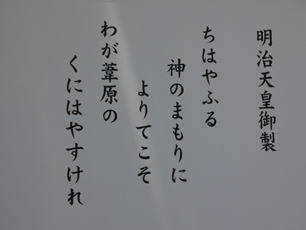 明治天皇御製
ちはやふる
神のまもりに
よりてこそ
わが葦原の
くにはやすけれ